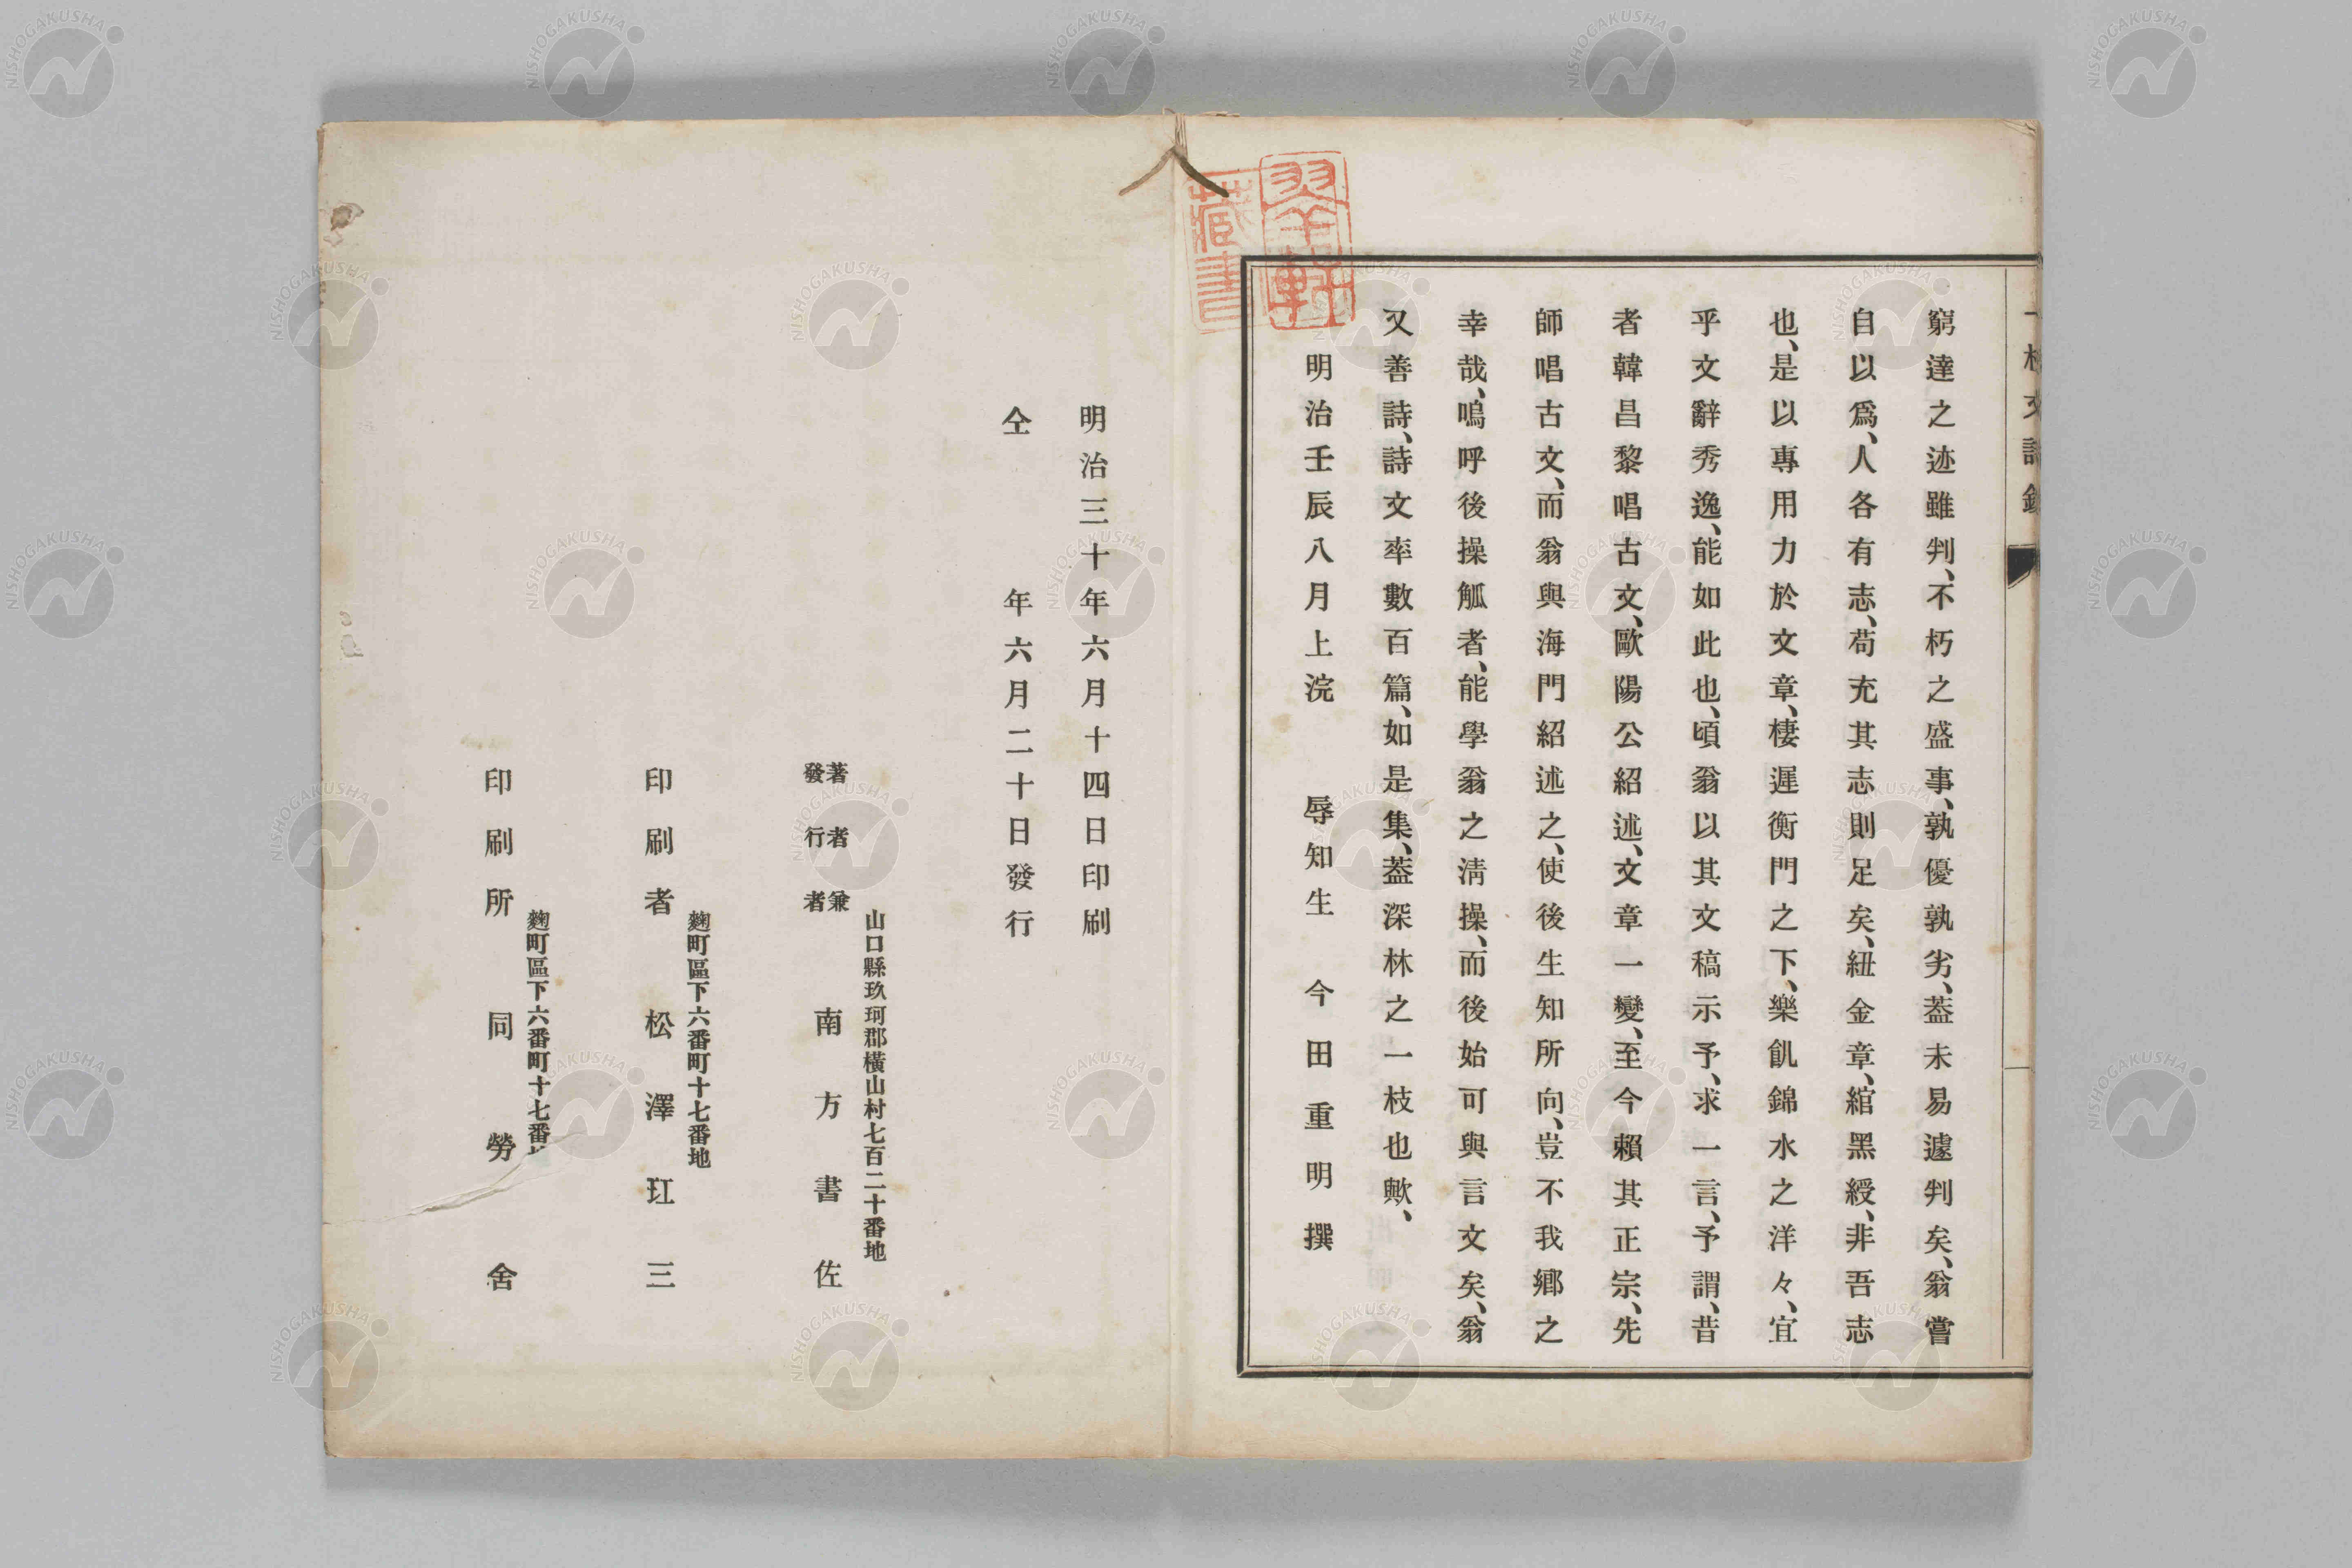 窮達之迹雖判、不朽之盛事、孰優孰劣、葢未易遽判矣、翁嘗
自以爲、人各有志、苟充其志則足矣、紐金章、綰黑綬、非吾志
也、是以專用力於文章、棲遲衡門之下、樂飢錦水之洋々、宜
乎文辭秀逸、能如此也、頃翁以其文稿示予、求一言、予謂、昔
者韓昌黎唱古文、歐陽公紹述、文章一變、至今賴其正宗、先
師唱古文、而翁與海門紹述之、使後生知所向、豈不我鄕之
幸哉、嗚呼後操觚者、能學翁之淸操、而後始可與言文矣、翁
又善詩、詩文率數百篇、如是集、葢深林之一枝也歟、
明治壬辰八月上浣 辱知生 今田重明撰
翠軒
藏書
明治三十年六月十四日印刷
仝 年六月二十日發行
山口縣玖珂郡橫山村七百二十番地
著者兼
發行者 南方書佐
麴町區下六番町十七番地
印刷者 松澤玒三
麴町區下六番町十七番
印刷所 同勞舍
NISHOGAKUSHA